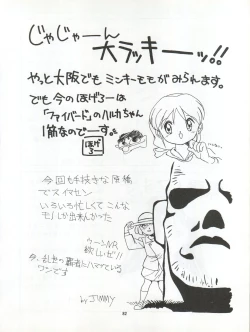 じゃじゃーーん
大ラッキーーッ!!
やっと大阪でもミンキーモモがみられます。
でも今のほげろーは
「ファイバード」のハルカちゃん
1筋なのでーす。
ほげろー
今回も手抜きな原稿
でスイマセン
いろいろ忙しくてこんな
モノしか出来んかった
今、乱世の覇者にハマっている
ワシです
by JIMMY